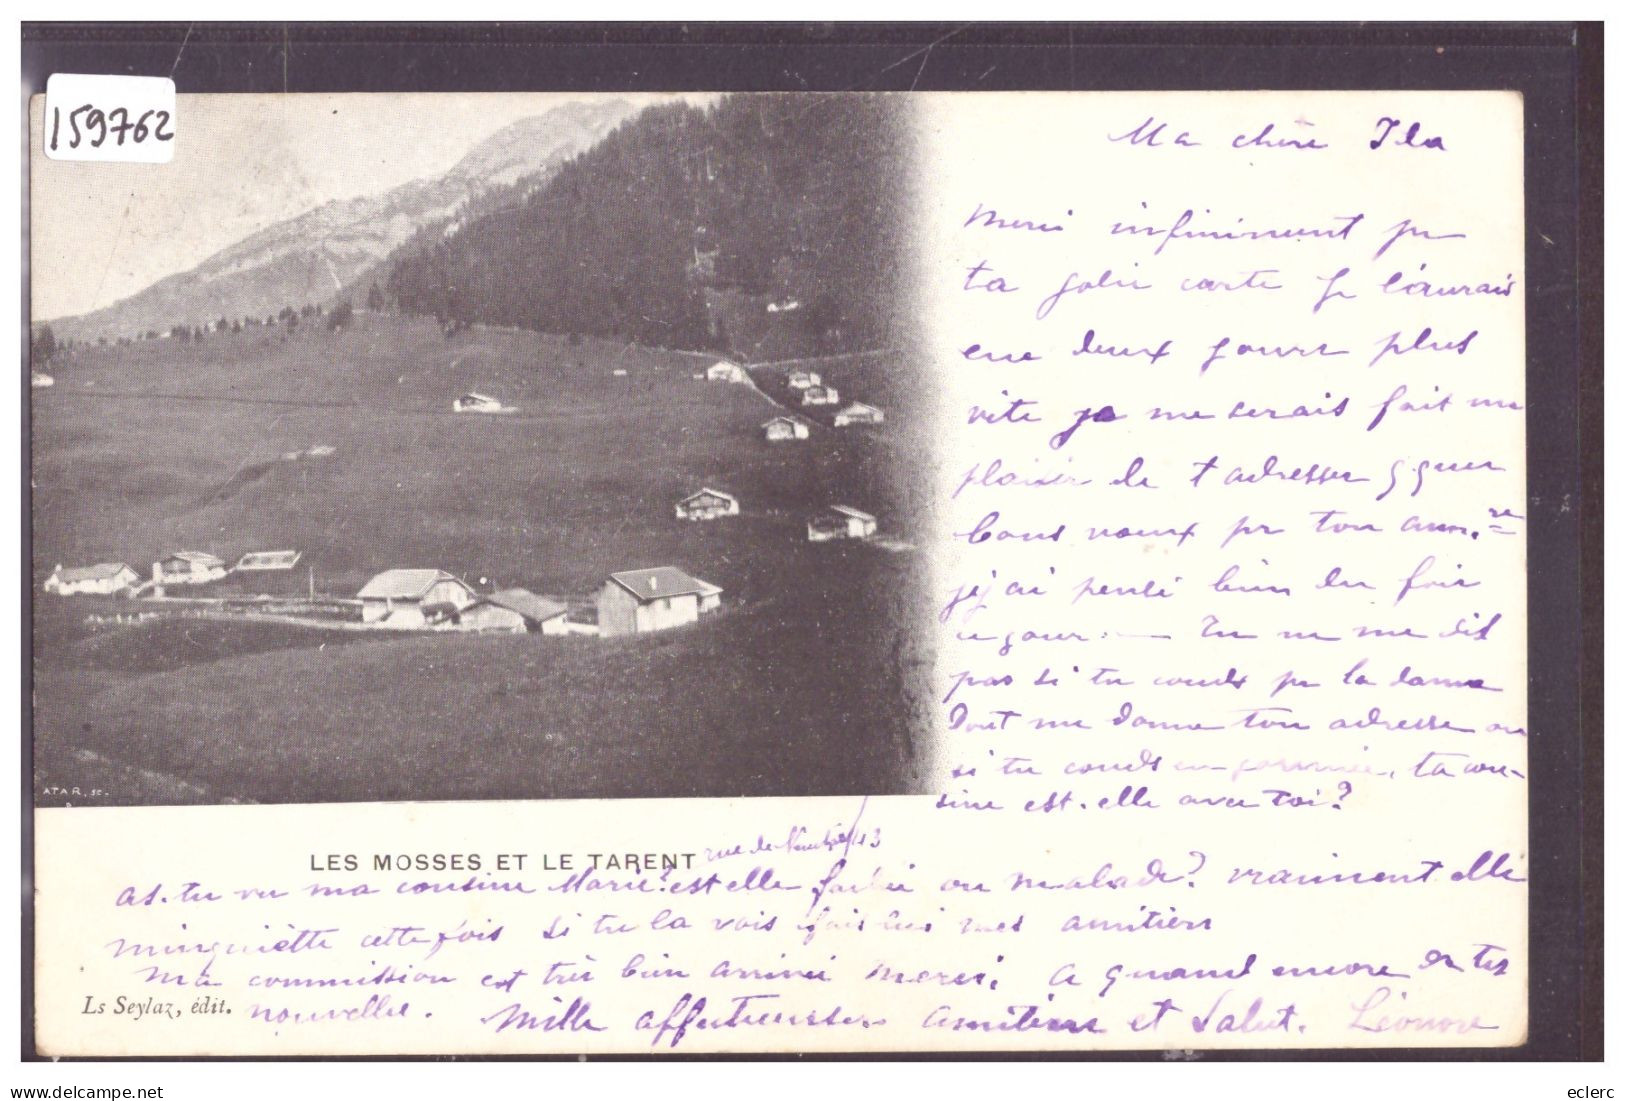 159762
Ma chère Ida
Merci infiniment pr
ta jolie carte Je l'aurais
eue deux jours plus
vite je me serais fait un
plaisir de t adresser qquer
bons voeux pr ton ann.re
j'y ai pensé bien des fois
ce jour. — Tu ne me dis
pas si tu couds pr la dame
Dont me donne ton adresse ou
si tu couds en journée, ta cou-
sine est-elle avec toi?
ATAR. sc.
LES MOSSES ET LE TARENT rue de 43
as-tu vu ma cousine Marie? est elle fachée ou malade? vraiment elle
m'inquiète cette fois si tu la vois fais lui mes amitiés
Ma commission est très bien arrivée merci. A quand encore de tes
Ls Seylaz, édit. nouvelles. Mille affectueuses amitiés et Salut. Léonore
eclerc